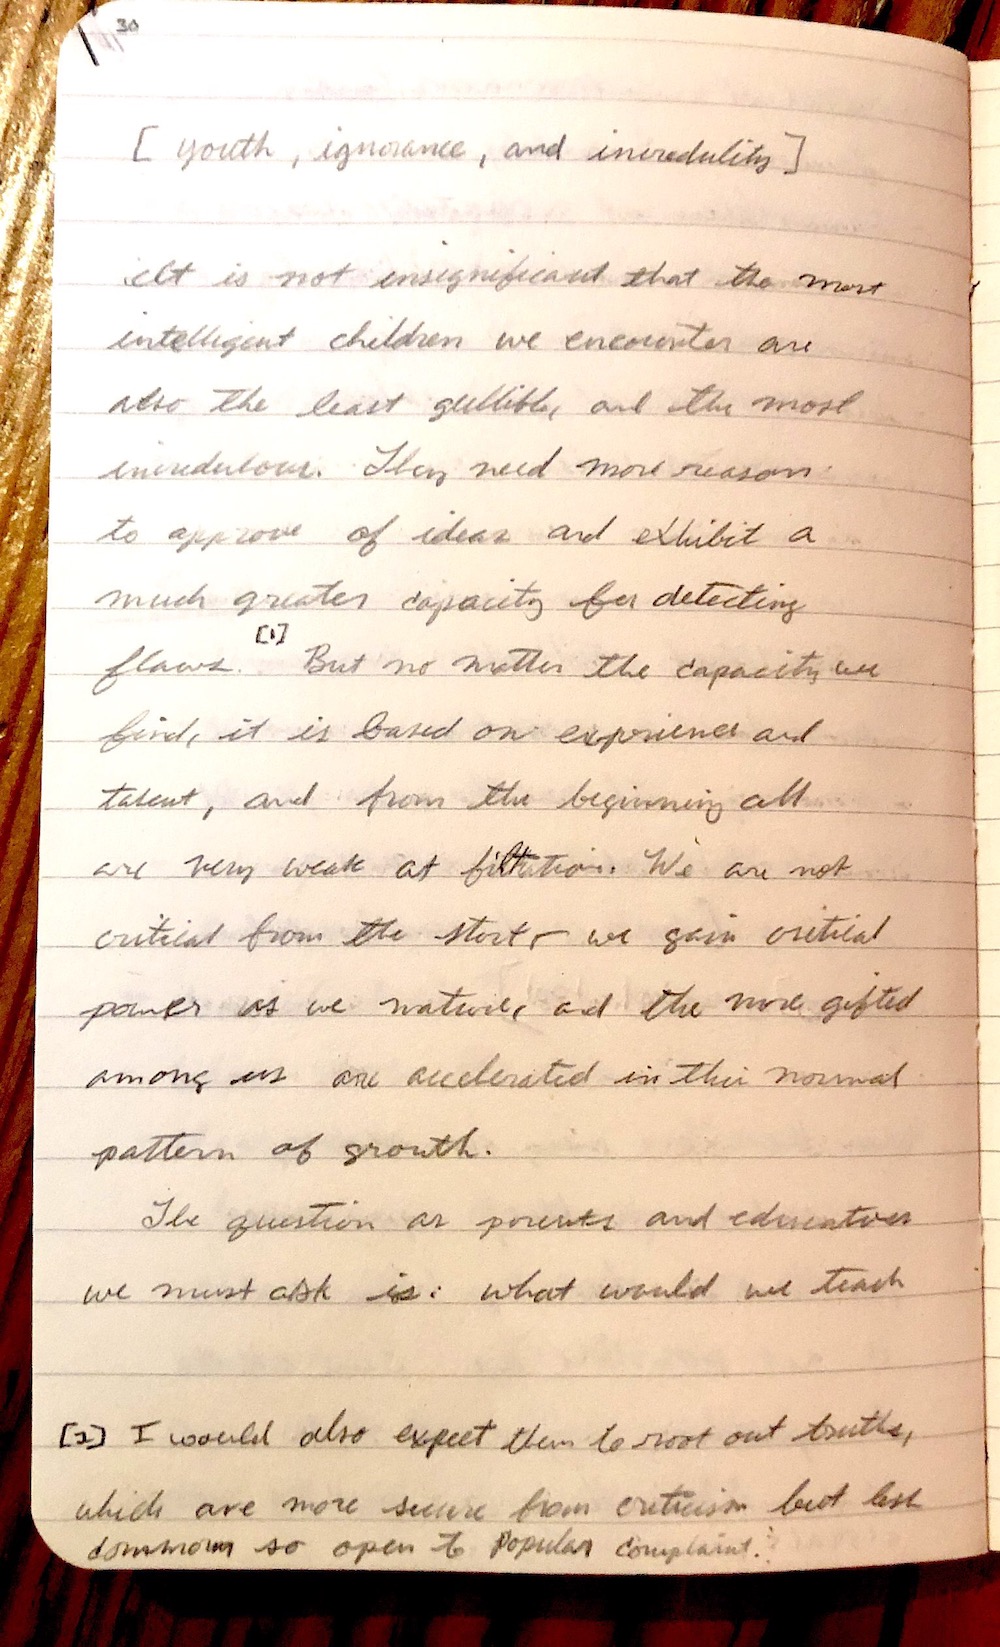 30
[ youth, ignorance, and incredulity]
It is not insignificant that the most
intelligent children we encounter are
also the least gullible, and the most
incredulous. They need more reason
to approve of ideas and exhibit a
much greater capacity for detecting
flaws.[1] But no matter the capacity we
find, it is based on experience and
talent, and from the beginning all
are very weak at filtration. We are not
critical from the start, we gain critical
power as we mature, and the more gifted
among us are accelerated in this normal
pattern of growth.
The question as parents and educators
we must ask is: what would we teach
[1] I would also expect them to root out truths,
which are more secure from criticism but less
common so open to popular complaint.